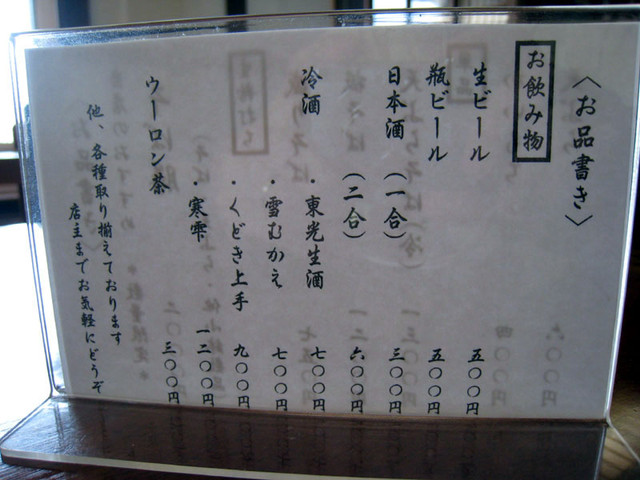 〈お品書き〉
お飲み物
生ビール 五〇〇円
瓶ビール 五〇〇円
日本酒(一合) 三〇〇円
(二合) 六〇〇円
冷酒・東光生酒 七〇〇円
・雪むかえ 七〇〇円
・くどき上手 九〇〇円
・寒雫 一二〇〇円
ウーロン茶 三〇〇円
他、各種取り揃えております
店主までお気軽にどうぞ